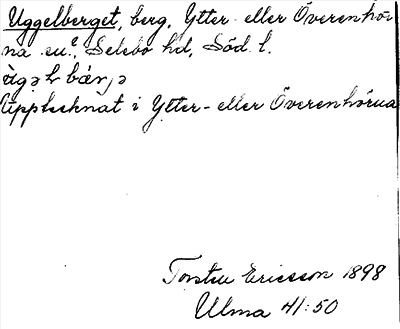 Uggelberget, berg, Ytter- eller Överenhör-
na sn?, Selebo hd, Söd. l.
Upptecknat i Ytter- eller Överenhörna
Torsten Ericsson 1898
Ulma 41:50